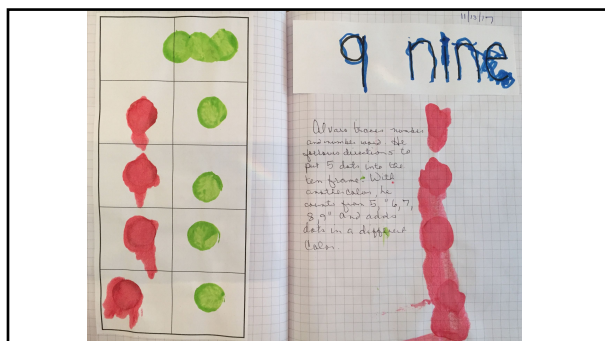 11/13/17
9 nine
Alvaro traces number
and number word. He
follows directions to
put 5 dots into the
ten frame. With
another color, he
counts from 5, "6, 7,
8, 9" and adds
dots in a different
color.